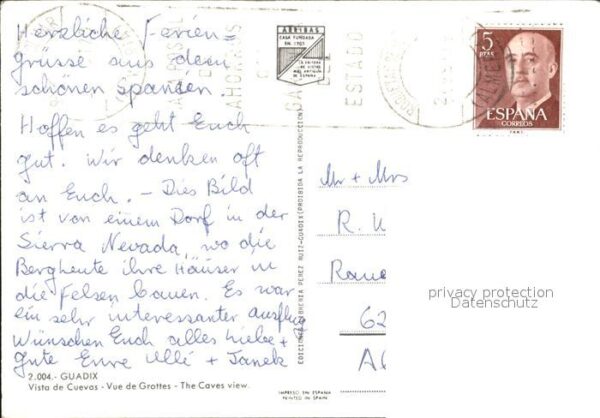 Herzliche Ferien=
grüsse aus dem
schönen Spanien.
Hoffen es geht Euch
gut. Wir denken oft
an Euch. – Dies Bild
ist von einem Dorf in der
Sierra Nevada, wo die
Bergleute ihre Häuser in
die Felsen bauen. Es war
ein sehr interessanter Ausflug
Wünschen Euch alles liebe +
Gute Eure Ullé + Janek
2.004.- GUADIX
Vista de Cuevas - Vue de Grottes - The Caves view.
ARRIBAS
CASA FUNDADA
EN 1905
AHORRO
ESTADO
EDICIONES LIBRERIA PEREZ RUIZ-GUADIX (PROHIBIDA LA REPRODUCCION)
IMPRESO EN ESPAÑA
PRINTED IN SPAIN
5
PTAS
ESPAÑA
CORREOS
Mr + Mrs
R.
62
privacy protection
Datenschutz